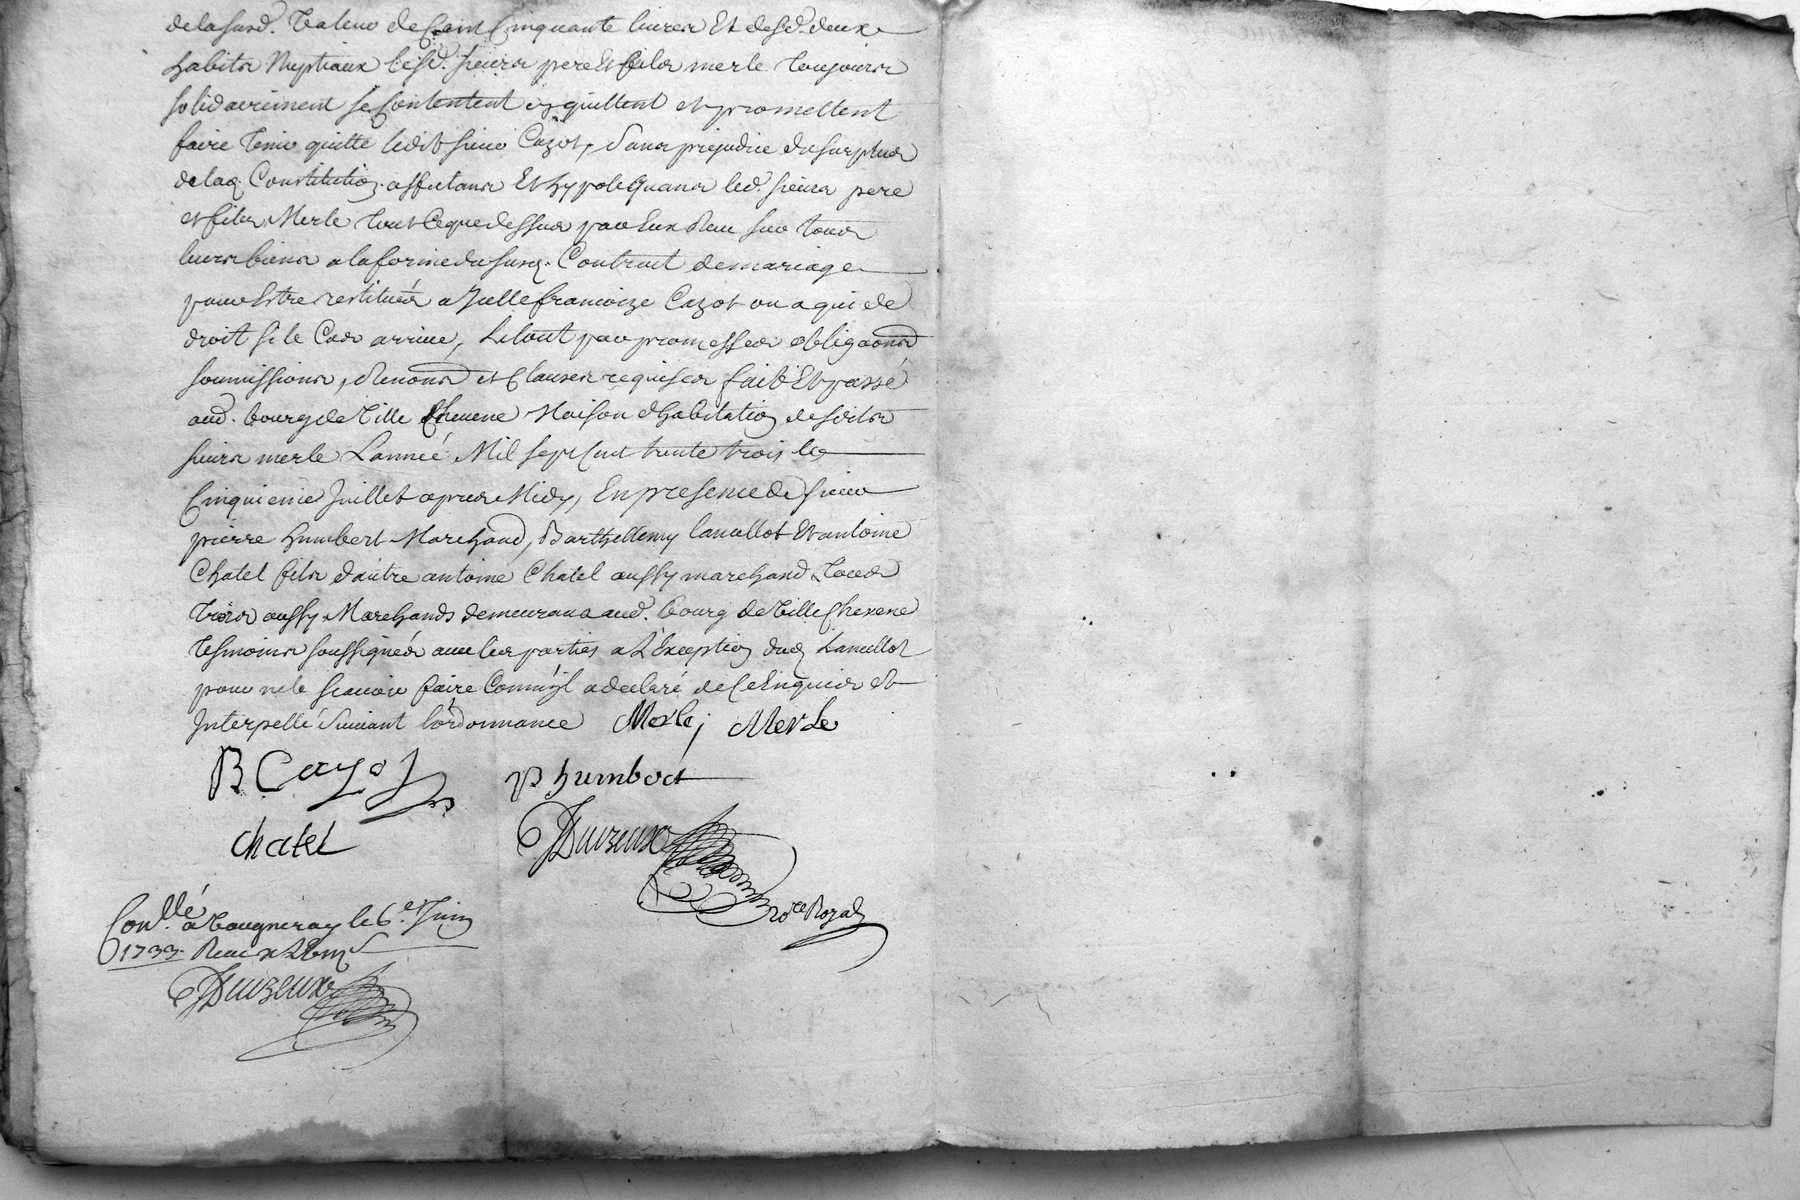 delasusd. valeur de Cent Cinquante livres Et desd. deux
habits Nuptiaux lesd. sieurs pere Et fils merle toujours
solidairement se Contentent quittent et promettent
faire tenir quitte ledit sieur Cazot, sans prejudice du surplus
delad. Constitution affectans Et hypotequans led. sieurs pere
et fils Merle tout Ceque dessus par Eux Recu sur tous
leurs biens alaforme dususd. Contract demariage
pour Estre restitués a Jelle francoize Cazot ou a qui de
droit si le Cas arrive, Letout par promesses obligaons
soumissions, Renons et Clauses requises fait Et passé
aud. bourg de Ville Chenene Maison d'habitation desdits
sieurs merle Lanneé Mil sept Cent trente trois le
Cinquieme Juillet apres Midy, En presence de sieur
pierre humbert Marchand, Barthellemy lancellot Et antoine
Chatel fils d'autre antoine Chatel aussy marchand tous
trois aussy Marchands demeurans aud. bourg de Ville Chenene
tesmoins soussignés avec les parties a L'Exception dud. Lancellot
pour ne le scavoir faire Comm'yl a declaré de Ce Enquis et
Interpellé suivant l'ordonnance Merle, Merle
B Cazot p humbert
Chatel Duizeux
nore Royal
Conllé a Vaugneray le 6e Juin
1733. Recu
Duizeux